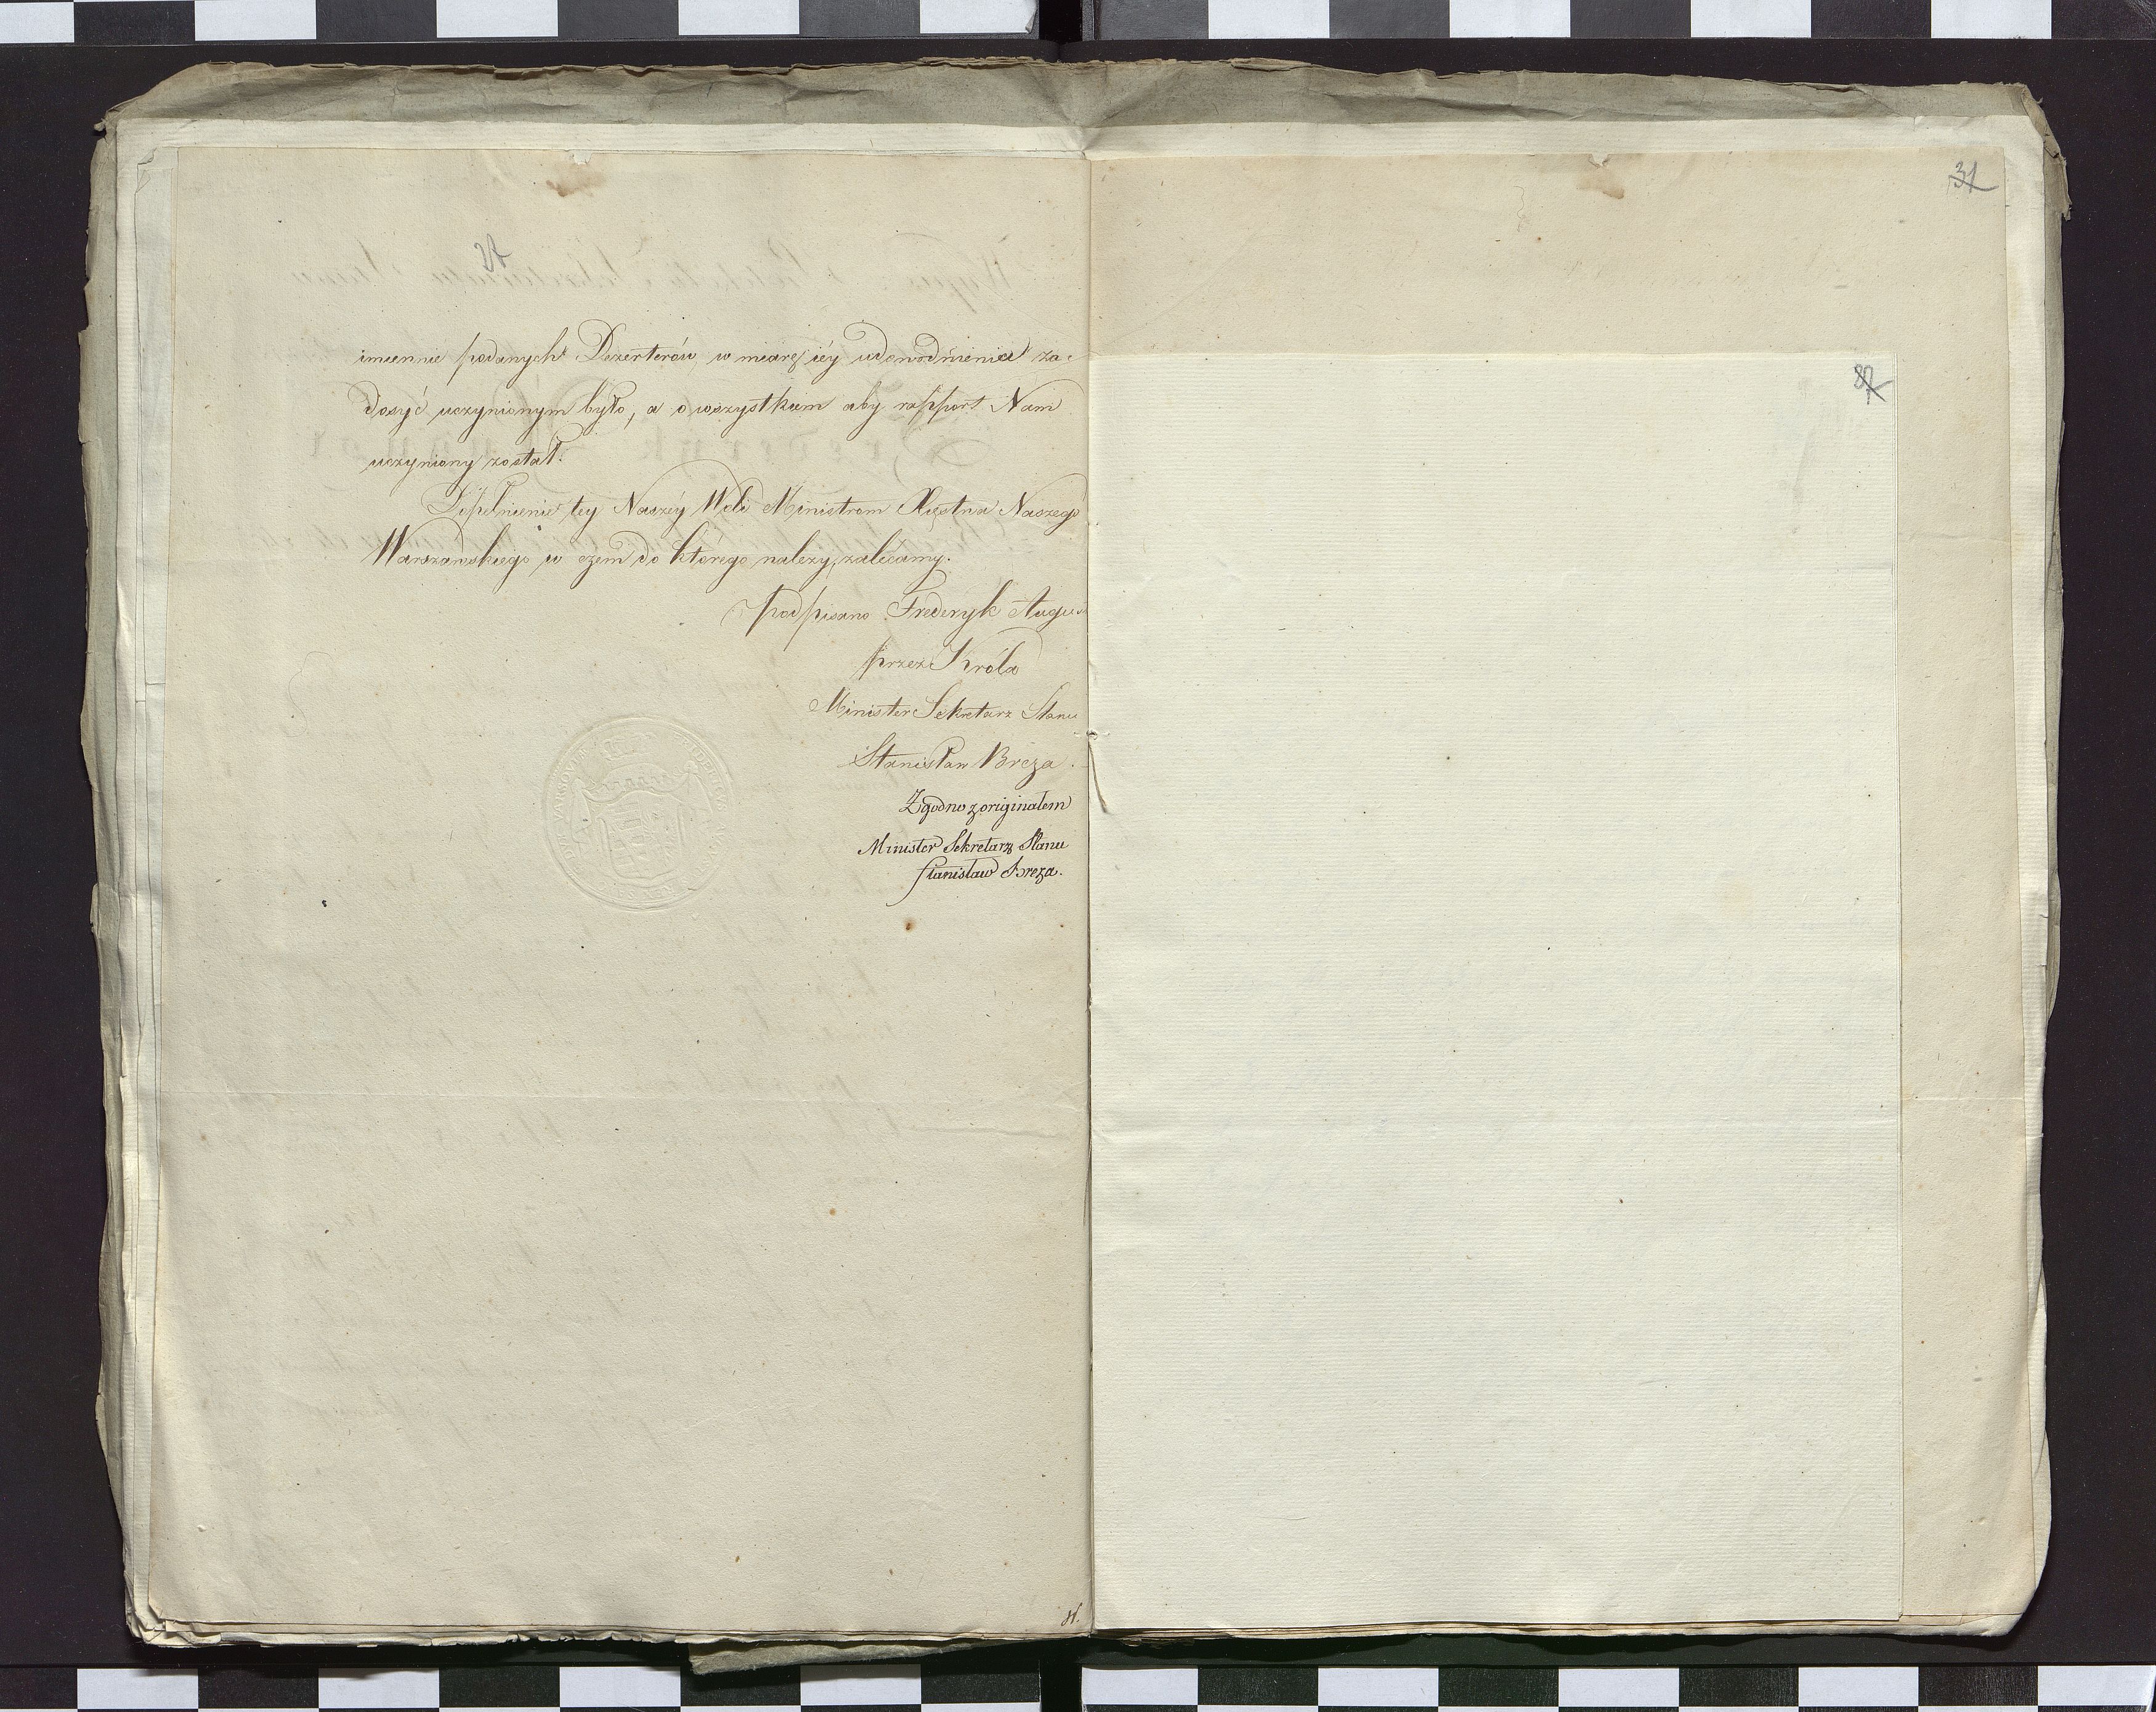 imiennie podanych Dezerterów, w miarę iéy udowodnienia za-
dosyć uczynionym było, a o wszystkiem aby rapport Nam
uczyniony został.
Dopełnienie tey Naszéy Woli Ministrom Xięstwa Naszego
Warszawskiego w czem do którego należy, zalécamy.
podpisano Frederyk Augus
przez Króla
Minister Sekretarz Stanu
Stanisław Breza.
Zgodno z originałem
Minister Sekretarz Stanu
Stanisław Breza.
31